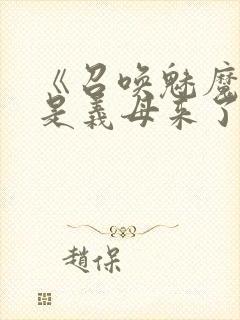 《召唤魅魔
是義母来了
趙保